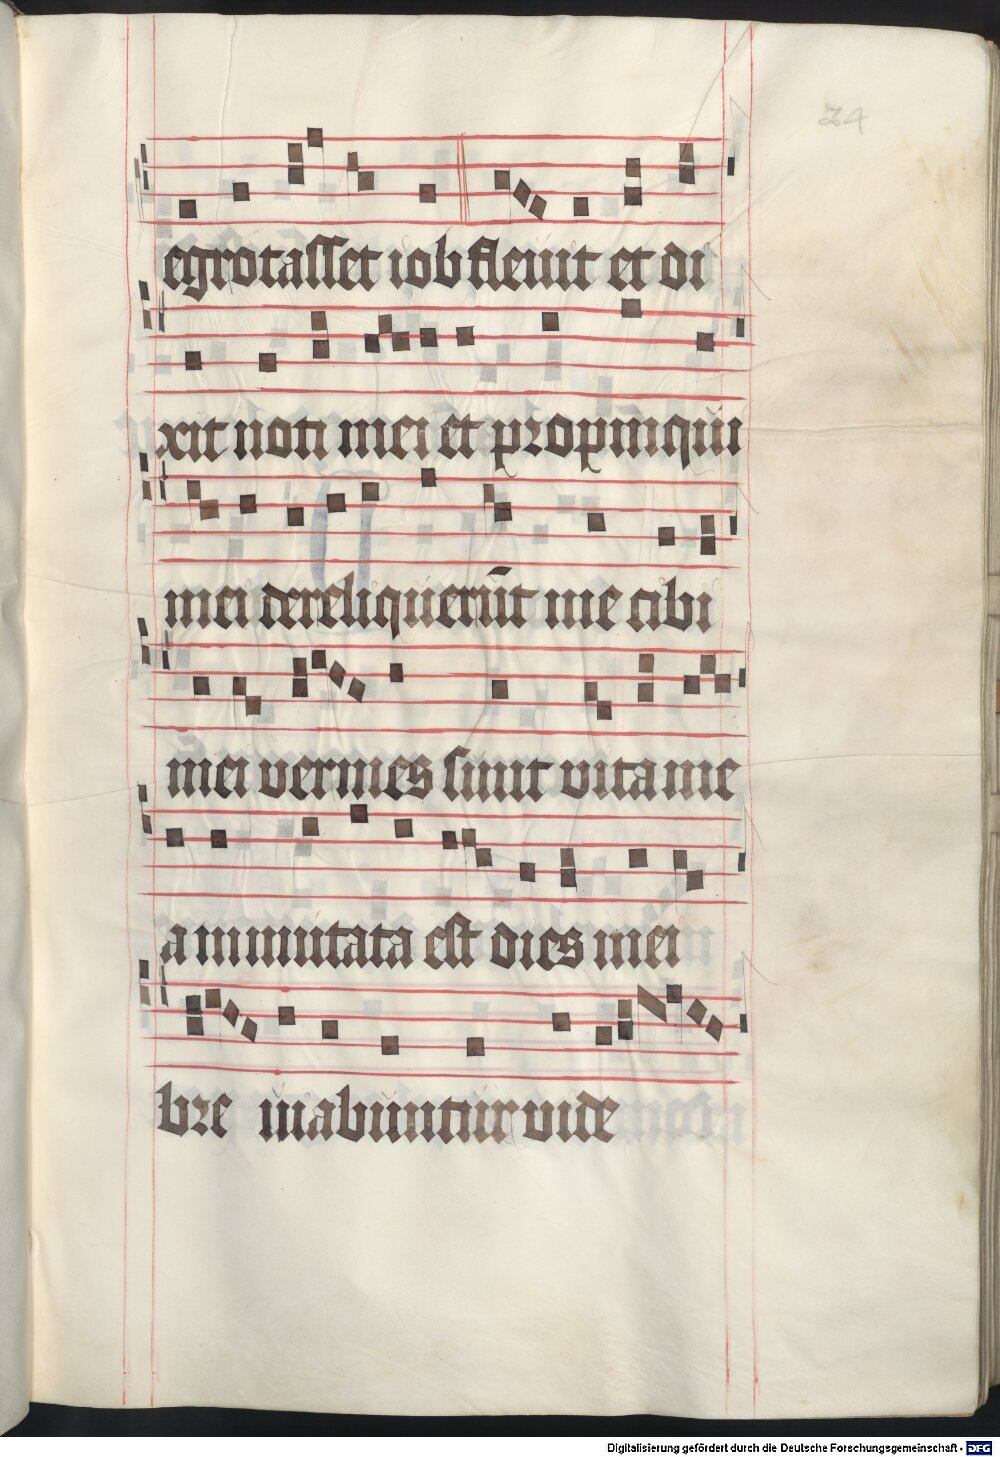 24
egrotasset iob fleuit et di
xit noti mei et propīnqui
mei dereliquerūt me cibi
mei vermes sunt vita me
a inmutata est dies mei
bre inabuntur vide
Digitalisierung gefördert durch die Deutsche Forschungsgemeinschaft - DFG